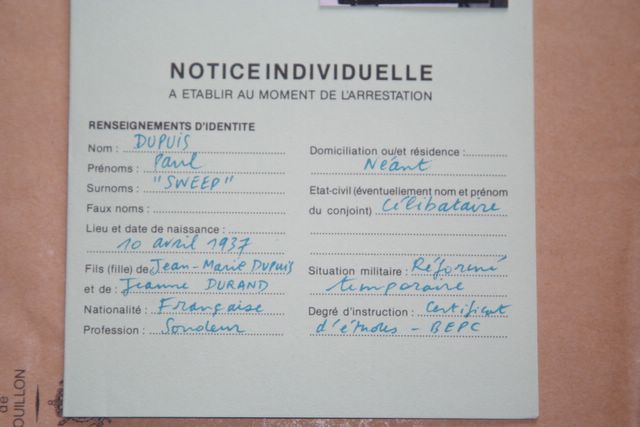 NOTICE INDIVIDUELLE
A ETABLIR AU MOMENT DE L'ARRESTATION
RENSEIGNEMENTS D'IDENTITE
Nom : DUPUIS
Prénoms : Paul
Surnoms : "SWEEP"
Faux noms :
Lieu et date de naissance :
10 avril 1937
Fils (fille) de Jean-Marie DUPUIS
et de : Jeanne DURAND
Nationalité : Française
Profession : Sondeur
Domiciliation ou/et résidence :
Néant
Etat-civil (éventuellement nom et prénom
du conjoint) Célibataire
Situation militaire : Réformé
temporaire
Degré d'instruction : Certificat
d'études - BEPC
de
OUILLON